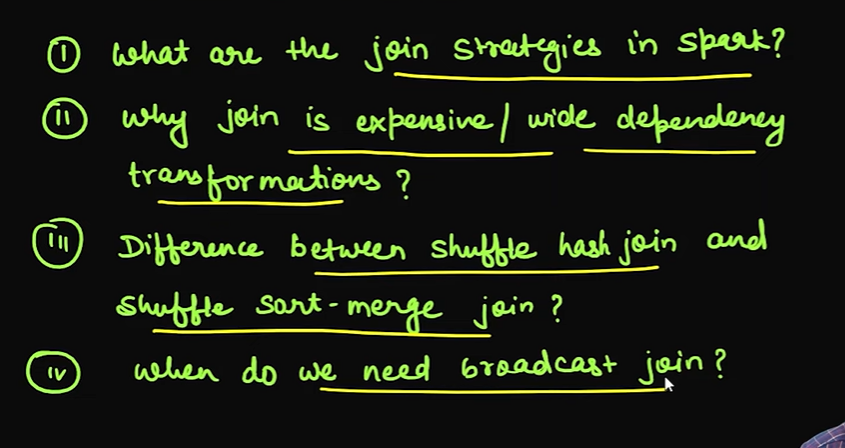 (i) What are the join strategies in spark?
(ii) Why join is expensive/ wide dependency
transformations ?
(iii) Difference between shuffle hash join and
shuffle sort-merge join ?
(iv) when do we need broadcast join ?